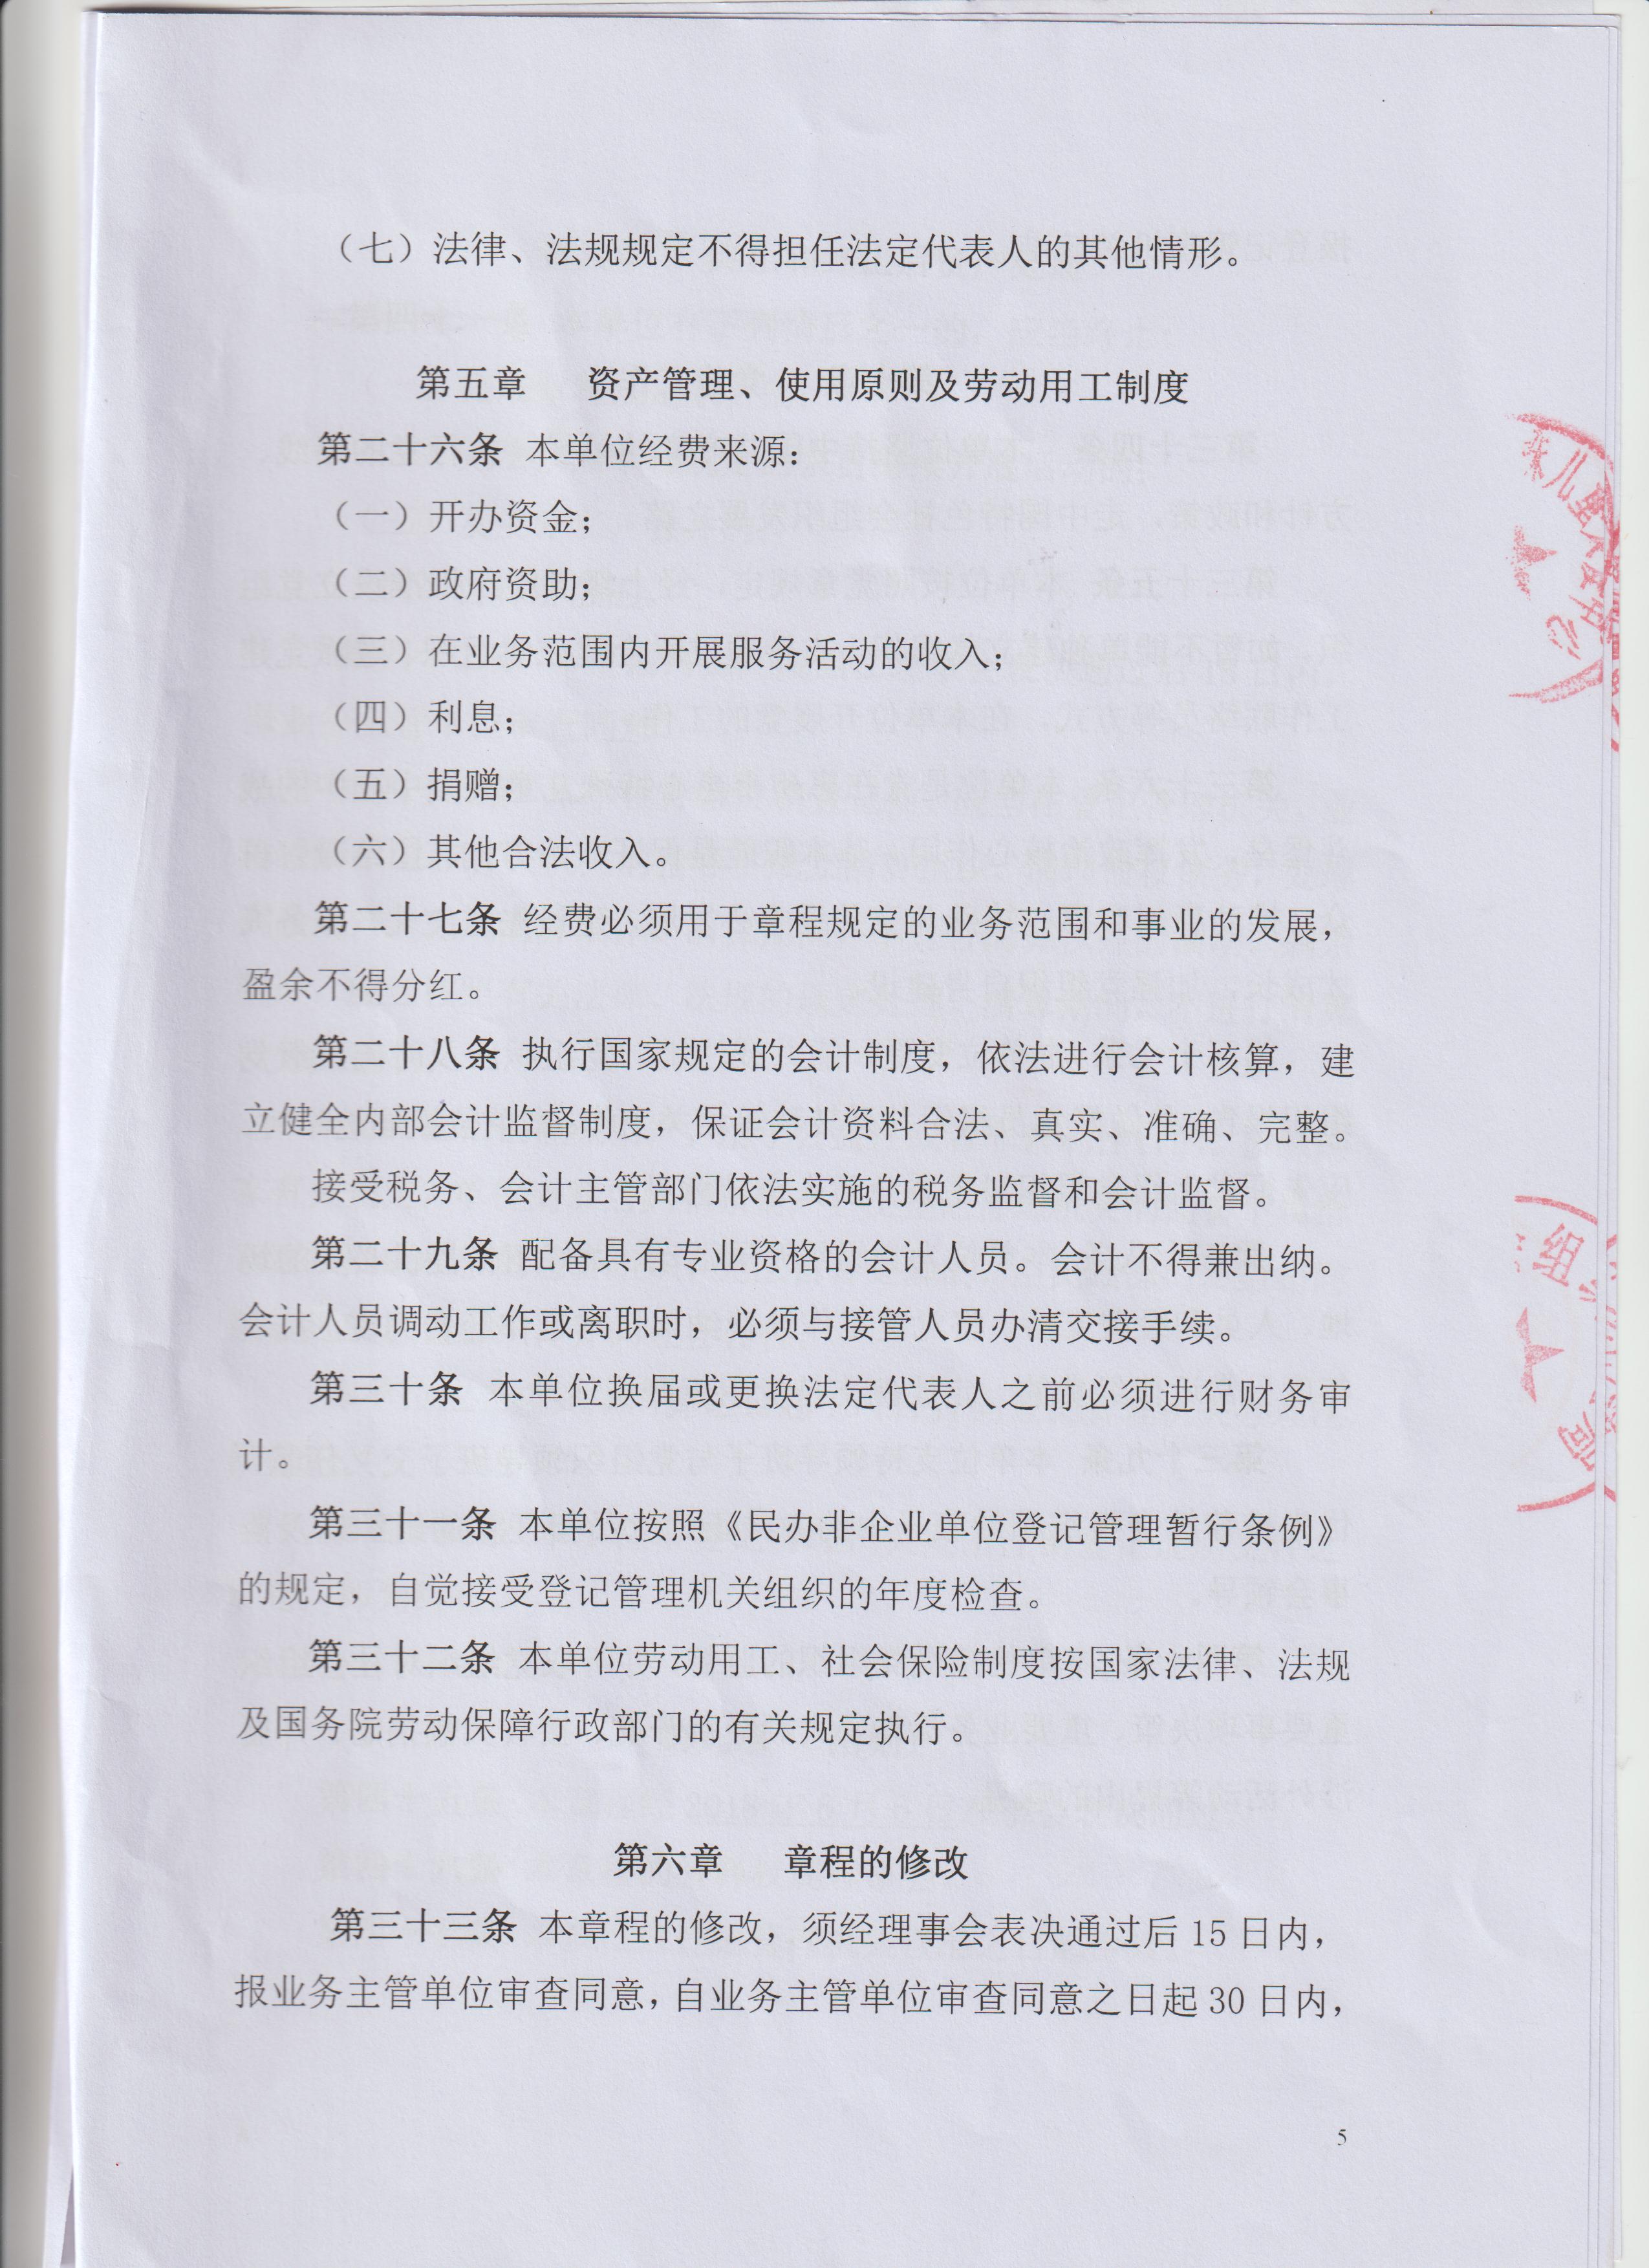 （七）法律、法规规定不得担任法定代表人的其他情形。
第五章 资产管理、使用原则及劳动用工制度
第二十六条 本单位经费来源：
（一）开办资金；
（二）政府资助；
（三）在业务范围内开展服务活动的收入；
（四）利息；
（五）捐赠；
（六）其他合法收入。
第二十七条 经费必须用于章程规定的业务范围和事业的发展，
盈余不得分红。
第二十八条 执行国家规定的会计制度，依法进行会计核算，建
立健全内部会计监督制度，保证会计资料合法、真实、准确、完整。
接受税务、会计主管部门依法实施的税务监督和会计监督。
第二十九条 配备具有专业资格的会计人员。会计不得兼出纳。
会计人员调动工作或离职时，必须与接管人员办清交接手续。
第三十条 本单位换届或更换法定代表人之前必须进行财务审
计。
第三十一条 本单位按照《民办非企业单位登记管理暂行条例》
的规定，自觉接受登记管理机关组织的年度检查。
第三十二条 本单位劳动用工、社会保险制度按国家法律、法规
及国务院劳动保障行政部门的有关规定执行。
第六章 章程的修改
第三十三条 本章程的修改，须经理事会表决通过后 15 日内，
报业务主管单位审查同意，自业务主管单位审查同意之日起 30 日内，
5
组
局